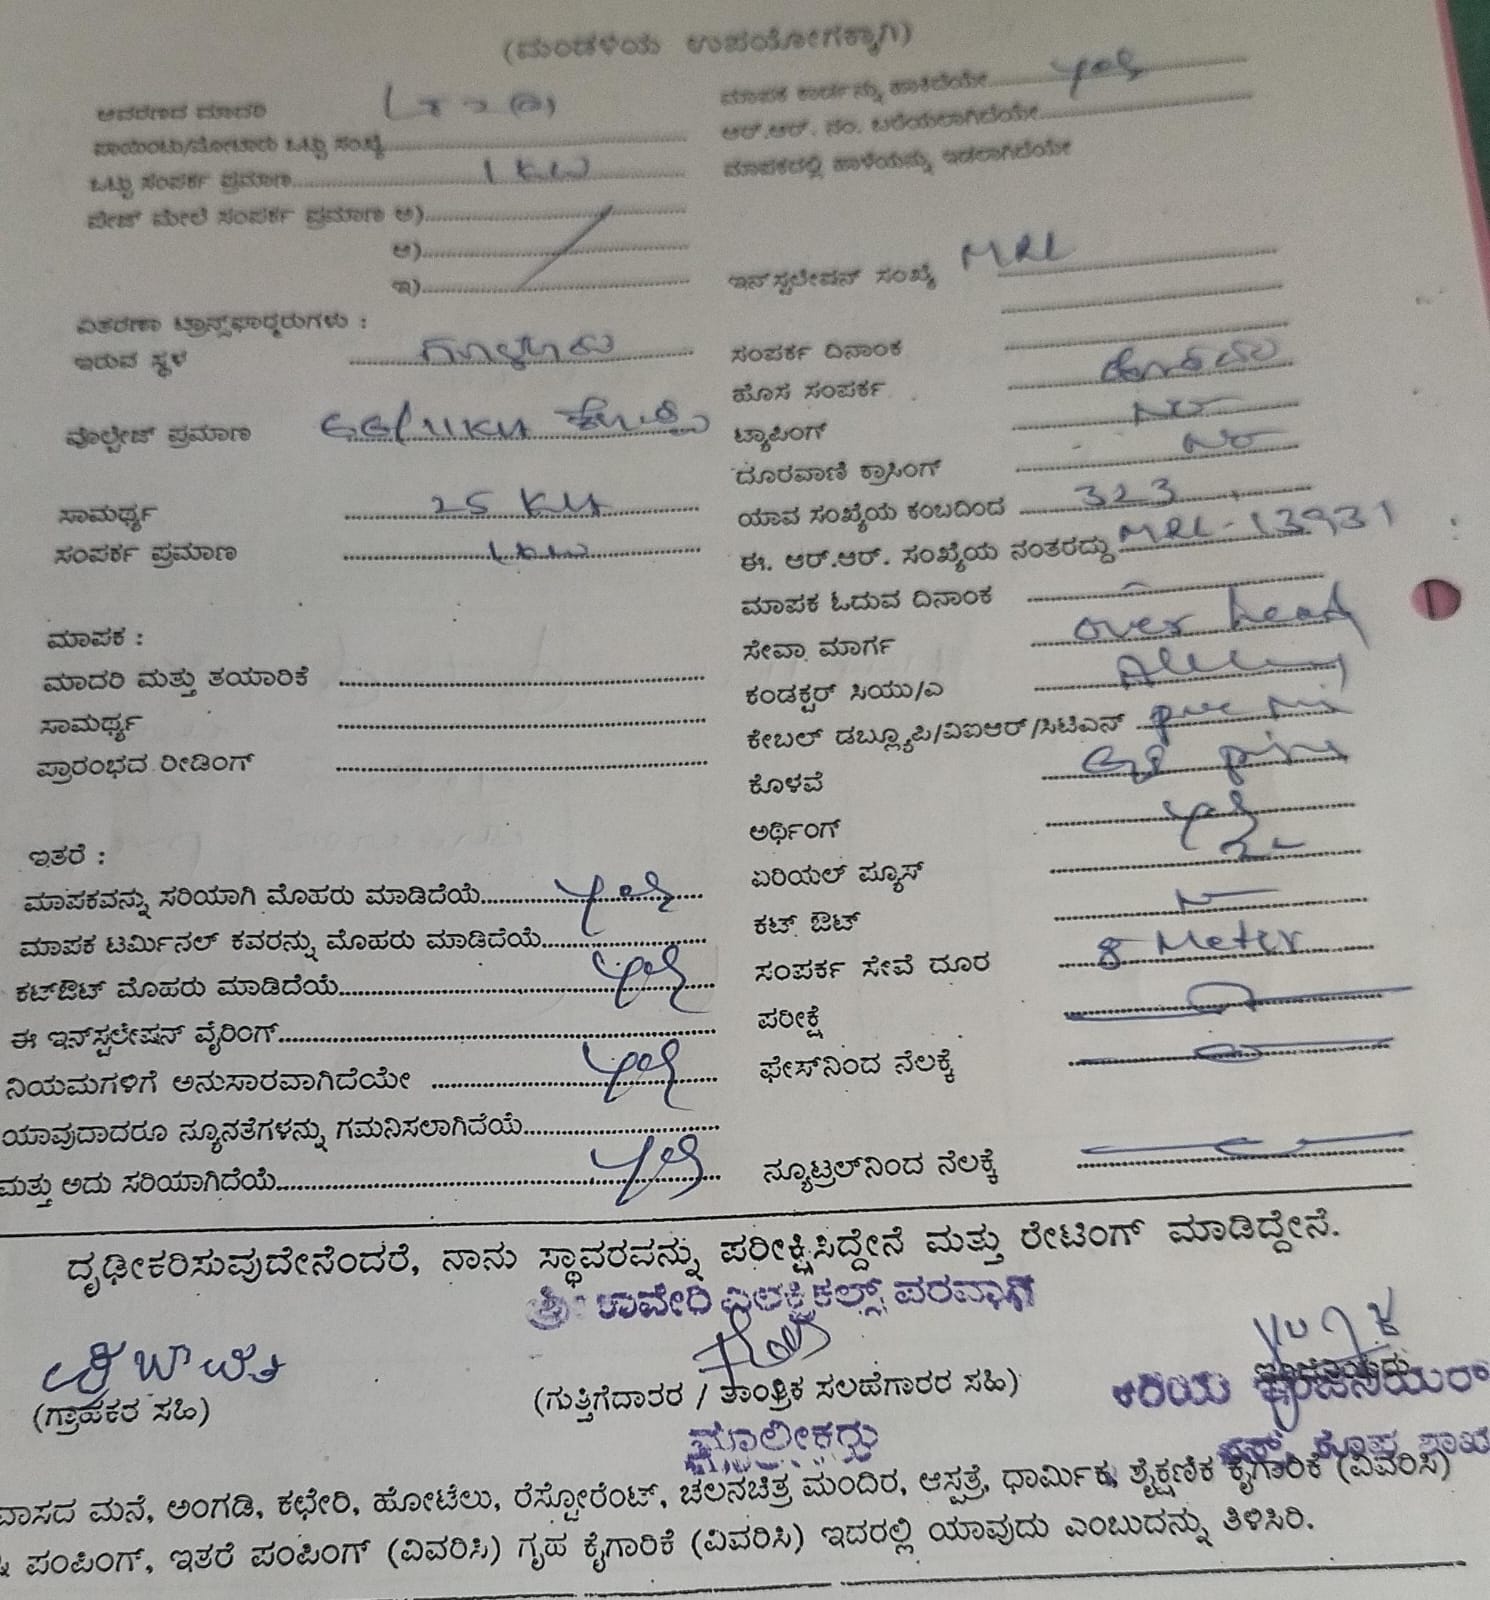 (ಮಂಡಳಿಯ ಉಪಯೋಗಕ್ಕಾಗಿ)
ಆವರಣದ ಮಾದರಿ
ಪಾಯಿಂಟು/ಮೋಟಾರು ಒಟ್ಟು ಸಂಖ್ಯೆ
ಒಟ್ಟು ಸಂಪರ್ಕ ಪ್ರಮಾಣ 1 KW
ಪೇಜ್ ಮೇಲೆ ಸಂಪರ್ಕ ಪ್ರಮಾಣ ಅ)
ಆ)
ಇ)
ವಿತರಣಾ ಟ್ರಾನ್ಸ್‌ಫಾರ್ಮರುಗಳು :
ಇರುವ ಸ್ಥಳ
ವೊಲ್ಟೇಜ್ ಪ್ರಮಾಣ
ಸಾಮರ್ಥ್ಯ 25
ಸಂಪರ್ಕ ಪ್ರಮಾಣ 1 KW
ಮಾಪಕ :
ಮಾದರಿ ಮತ್ತು ತಯಾರಿಕೆ
ಸಾಮರ್ಥ್ಯ
ಪ್ರಾರಂಭದ ರೀಡಿಂಗ್
ಇತರೆ :
ಮಾಪಕವನ್ನು ಸರಿಯಾಗಿ ಮೊಹರು ಮಾಡಿದೆಯೆ yes
ಮಾಪಕ ಟರ್ಮಿನಲ್ ಕವರನ್ನು ಮೊಹರು ಮಾಡಿದೆಯೆ
ಕಟ್‌ಔಟ್ ಮೊಹರು ಮಾಡಿದೆಯೆ yes
ಈ ಇನ್‌ಸ್ಟಲೇಷನ್ ವೈರಿಂಗ್
ನಿಯಮಗಳಿಗೆ ಅನುಸಾರವಾಗಿದೆಯೇ yes
ಯಾವುದಾದರೂ ನ್ಯೂನತೆಗಳನ್ನು ಗಮನಿಸಲಾಗಿದೆಯೆ
ಮತ್ತು ಅದು ಸರಿಯಾಗಿದೆಯೆ yes
ಮಾಪಕ ಕಾರ್ಡನ್ನು ಹಾಕಿದೆಯೇ yes
ಆರ್.ಆರ್. ನಂ. ಬರೆಯಲಾಗಿದೆಯೇ
ಮಾಪಕದಲ್ಲಿ ಹಾಳೆಯನ್ನು ಇಡಲಾಗಿದೆಯೇ
ಇನ್‌ಸ್ಟಲೇಷನ್ ಸಂಖ್ಯೆ MRL
ಸಂಪರ್ಕ ದಿನಾಂಕ
ಹೊಸ ಸಂಪರ್ಕ
ಟ್ಯಾಪಿಂಗ್ No
ದೂರವಾಣಿ ಕ್ರಾಸಿಂಗ್ No
ಯಾವ ಸಂಖ್ಯೆಯ ಕಂಬದಿಂದ 323
ಈ. ಆರ್.ಆರ್. ಸಂಖ್ಯೆಯ ನಂತರದ್ದು MRL-13931
ಮಾಪಕ ಓದುವ ದಿನಾಂಕ
ಸೇವಾ ಮಾರ್ಗ over head
ಕಂಡಕ್ಟರ್ ಸಿಯು/ಎ
ಕೇಬಲ್ ಡಬ್ಲ್ಯೂಪಿ/ವಿಐಆರ್/ಸಿಟಿಎಸ್
ಕೊಳವೆ
ಅರ್ಥಿಂಗ್ yes
ಏರಿಯಲ್ ಫ್ಯೂಸ್
ಕಟ್ ಔಟ್
ಸಂಪರ್ಕ ಸೇವೆ ದೂರ 8 Meter
ಪರೀಕ್ಷೆ
ಫೇಸ್‌ನಿಂದ ನೆಲಕ್ಕೆ
ನ್ಯೂಟ್ರಲ್‌ನಿಂದ ನೆಲಕ್ಕೆ
ದೃಢೀಕರಿಸುವುದೇನೆಂದರೆ, ನಾನು ಸ್ಥಾವರವನ್ನು ಪರೀಕ್ಷಿಸಿದ್ದೇನೆ ಮತ್ತು ರೇಟಿಂಗ್ ಮಾಡಿದ್ದೇನೆ.
ಶ್ರೀ ಕಾವೇರಿ ಎಲೆಕ್ಟ್ರಿಕಲ್ಸ್ ಪರವಾಗಿ
(ಗ್ರಾಹಕರ ಸಹಿ)
(ಗುತ್ತಿಗೆದಾರರ / ತಾಂತ್ರಿಕ ಸಲಹೆಗಾರರ ಸಹಿ)
ಕಿರಿಯ ಇಂಜಿನಿಯರ್
ಮಾಲೀಕರು
ವಾಸದ ಮನೆ, ಅಂಗಡಿ, ಕಛೇರಿ, ಹೋಟೆಲು, ರೆಸ್ಟೋರೆಂಟ್, ಚಲನಚಿತ್ರ ಮಂದಿರ, ಆಸ್ಪತ್ರೆ, ಧಾರ್ಮಿಕ, ಶೈಕ್ಷಣಿಕ ಕೈಗಾರಿಕೆ (ವಿವರಿಸಿ)
ಪಂಪಿಂಗ್, ಇತರೆ ಪಂಪಿಂಗ್ (ವಿವರಿಸಿ) ಗೃಹ ಕೈಗಾರಿಕೆ (ವಿವರಿಸಿ) ಇದರಲ್ಲಿ ಯಾವುದು ಎಂಬುದನ್ನು ತಿಳಿಸಿರಿ.